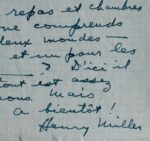 repas et chambres
ne comprends
deux mondes —
et un pour les
? D'ici il
tout est assez
vous. Mais
a bientôt!
Henry Miller